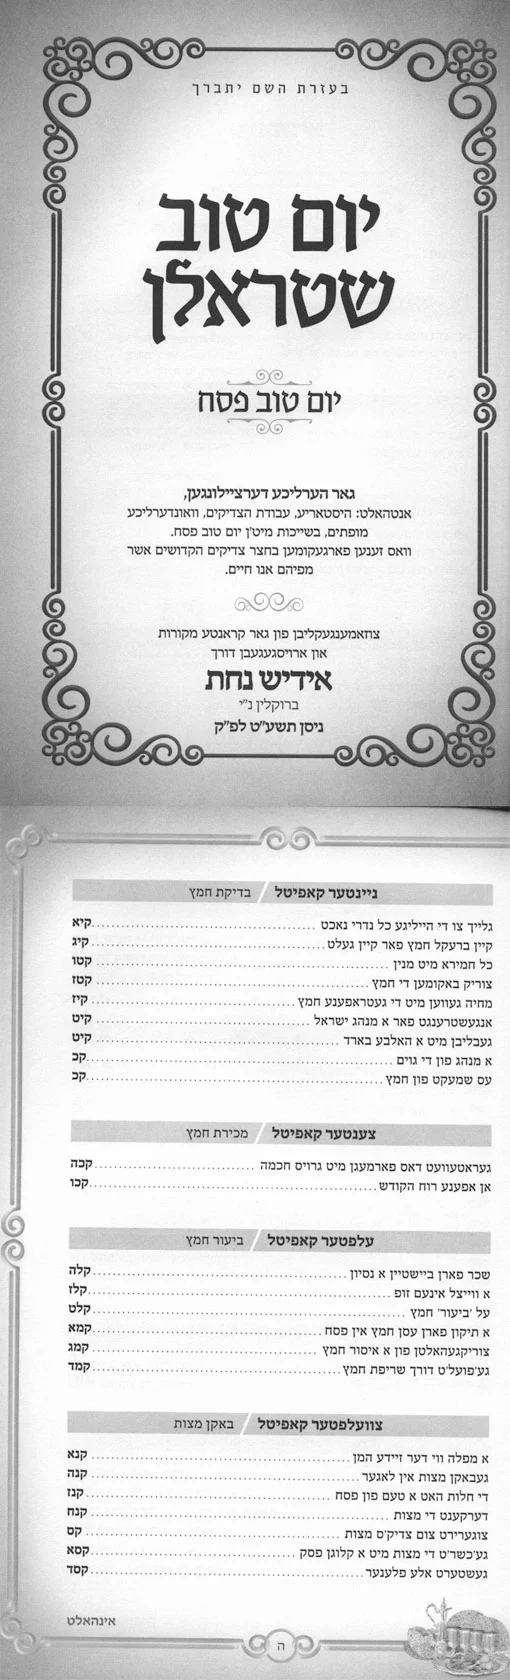 בעזרת השם יתברך
יום טוב
שטראלן
יום טוב פסח
גאר הערליכע דערציילונגען,
אנטהאלט: היסטאריע, עבודת הצדיקים, וואונדערליכע
מופתים, בשייכות מיט'ן יום טוב פסח.
וואס זענען פארגעקומען בחצר צדיקים הקדושים אשר
מפיהם אנו חיים.
צוזאמענגעקליבן פון גאר קראנטע מקורות
און ארויסגעגעבן דורך
אידיש נחת
ברוקלין נ"י
ניסן תשע"ט לפ"ק
ניינטער קאפיטל / בדיקת חמץ
גלייך צו די הייליגע כל נדרי נאכט ........ קיא
קיין ברעקל חמץ פאר קיין געלט ........ קיג
כל חמירא מיט מנין ........ קטו
צוריק באקומען די חמץ ........ קטז
מחיה געווען מיט די געטראפענע חמץ ........ קיז
אנגעשטרענגט פאר א מנהג ישראל ........ קיט
געבליבן מיט א האלבע בארד ........ קיט
א מנהג פון די גוים ........ קכ
עס שמעקט פון חמץ ........ קכ
צענטער קאפיטל / מכירת חמץ
געראטעוועט דאס פארמעגן מיט גרויס חכמה ........ קכה
אן אפענע רוח הקודש ........ קכו
עלפטער קאפיטל / ביעור חמץ
שכר פארן ביישטיין א נסיון ........ קלה
א ווייצל אינעם זופ ........ קלז
על 'ביעור' חמץ ........ קלט
א תיקון פארן עסן חמץ אין פסח ........ קמא
צוריקגעהאלטן פון א איסור חמץ ........ קמג
גע'פועל'ט דורך שריפת חמץ ........ קמד
צוועלפטער קאפיטל / באקן מצות
א מפלה ווי דער זיידע המן ........ קנא
געבאקן מצות אין לאגער ........ קנה
די חלות האט א טעם פון פסח ........ קנז
דערקענט די מצות ........ קנח
צוגערירט צום צדיק'ס מצות ........ קס
גע'כשר'ט די מצות מיט א קלוגן פסק ........ קסא
געשטערט אלע פלענער ........ קסד
אינהאלט
ה